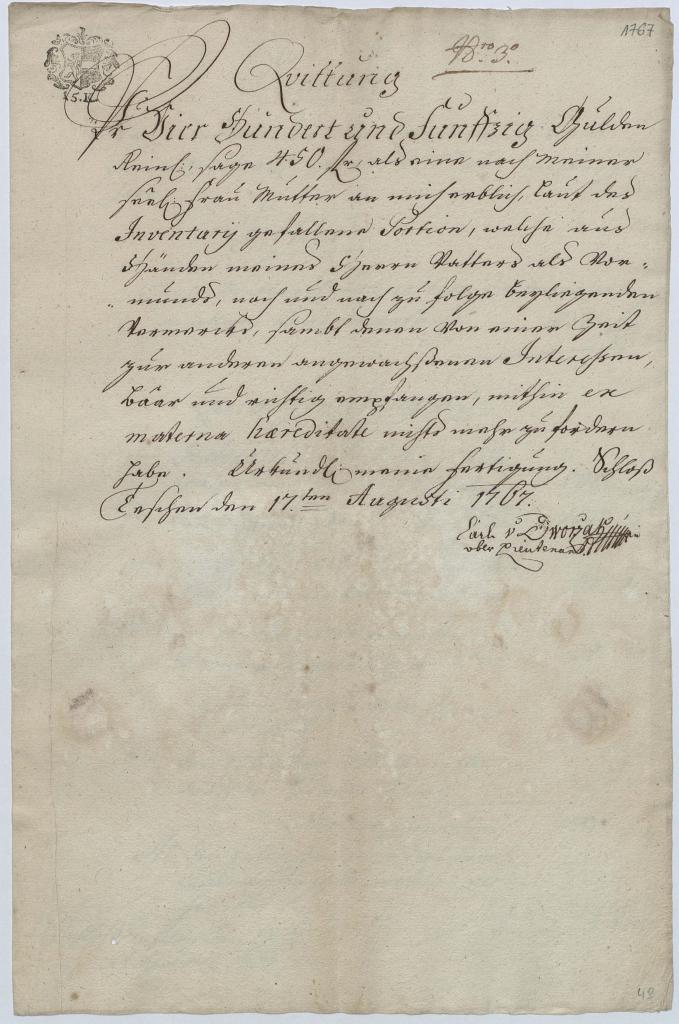 1767
Nro 3o
Qvittung
15. K
Pr Vier Hundert und Funffzig Gulden
Reinl: sage 450. fr, als eine nach meiner
seel: Frau Mutter an mich erblich, laut des
Inventarij gefallene Portion, welche aus
Händen meines Herrn Vatters als Vor=
=munds, nach und nach zu folge beyliegenden
Vermercks, sambt denen von einer Zeit
zur anderen angewachßenen Interessen,
baar und richtig empfangen, mithin ex
materna hæreditate nichts mehr zu fordern
habe. Urkundl: meine Fertigung. Schloß
Teschen den 17.ten Augusti 1767.
Carl v Dworzak
ober Lieutenant
49